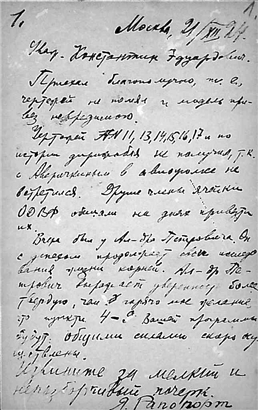 1.
Москва, 21/VII 24.
Ув. Константин Эдуардович.
Приехал благополучно, т. е.,
чертежей не помял и модель про-
вез невредимою.
Чертежей №№ 11, 13, 14, 15, 16, 17 и по
истории дирижабля не получил, т. к.
с в не
встретился. Другие члены ячейки
ОДВФ обещали на днях привезти
их.
Вчера был у Ал-дра Петровича. Он
с успехом продолжает свои исследо-
вания жизни корней. Ал-др Пе-
трович выражает уверенность более
твердую, чем горячо мое желание,
пункты 4-8 Вашей программы
будут общими силами скоро осу-
ществлены.
Извините за мелкий и
неразборчивый почерк.
Я. Рапопорт